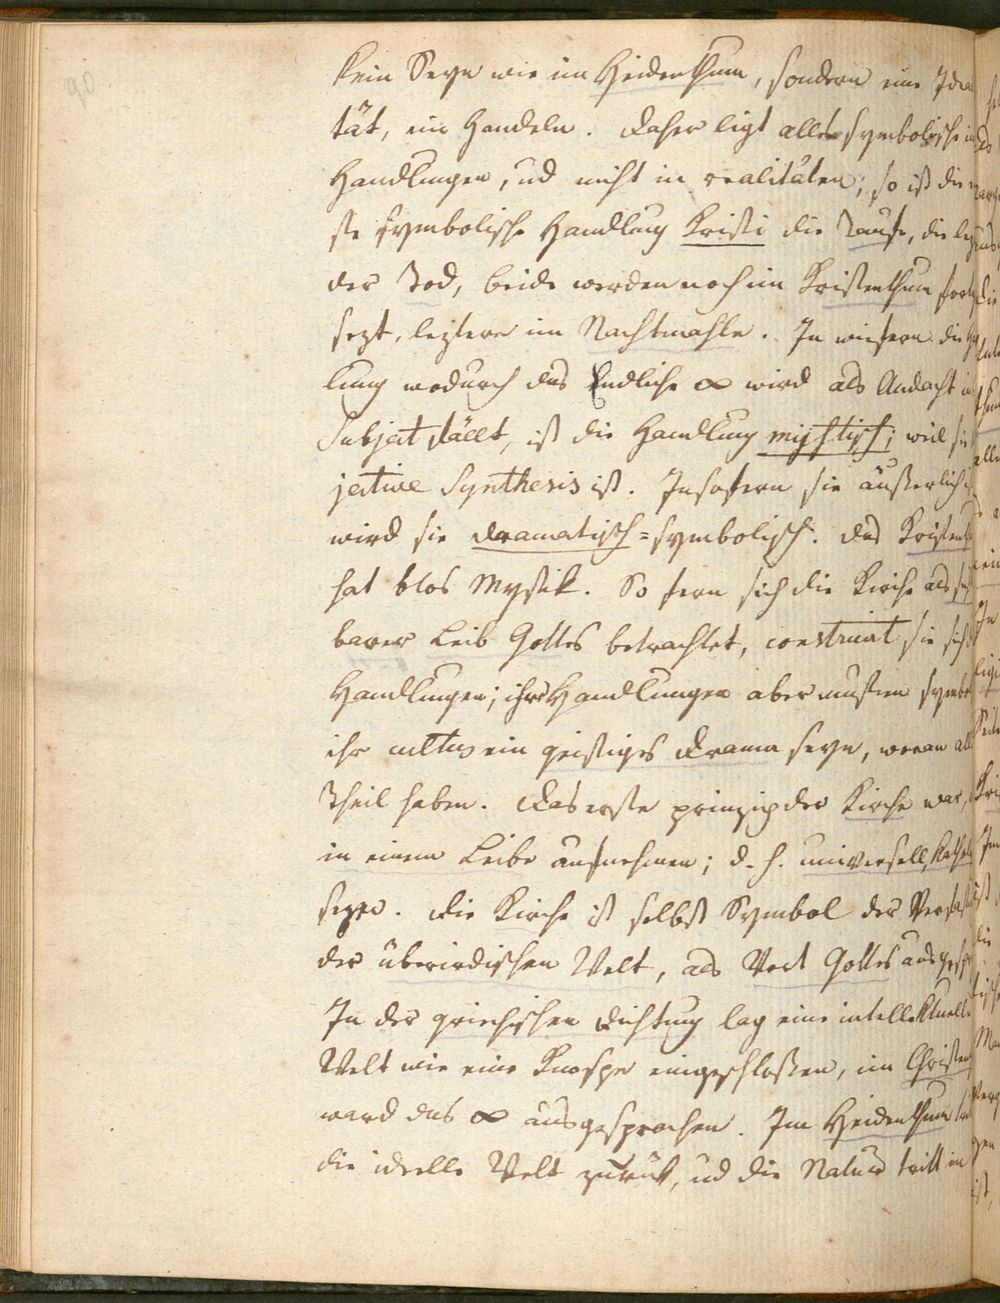 kein Seyn wie im Heidenthum, sondern eine Idea
tät, ein Handeln. Daher ligt alles symbolische in
Handlungen, ud nicht in realitäten; so ist die
ste symbolische Handlung Kristi die Taufe, die le
der Tod, beide werden noch im Kristenthum fort
sezt, leztere im Nachtmahle. In wiefern die Ha
lung wodurch das Endliche ∞ wird als Andacht in
Subject fällt, ist die Handlung mystisch; weil sie
jective Synthesis ist. Insofern sie äußerlich
wird sie dramatisch=symbolisch. Das Kristent
hat blos Mystik. So fern sich die Kirche als sicht
barer Leib Gottes betrachtet, construirt sie sich
Handlungen; ihre Handlungen aber mußten symbo
ihr cultus ein geistiges Drama seyn, woran alle
Theil haben. Das erste prinzip der Kirche war,
in einem Leibe aufnehmen; d. h. universell, Kathol
seyn. Die Kirche ist selbst Symbol der Verfass
der überirdischen Welt, als Wort Gottes ausgesp
In der griechischen Dichtung lag eine intellektuelle
Welt wie eine Knospe eingeschloßen, im Christen
ward das ∞ ausgesprochen. Im Heidenthum
die ideelle Welt zurük, ud die Natur tritt in